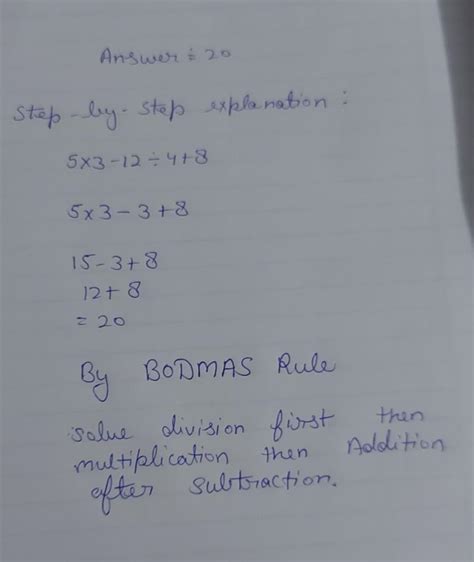 Answer : 20
Step-by-step explanation :
5×3-12÷4+8
5×3-3+8
15-3+8
12+8
= 20
By BODMAS Rule
solve division first then
multiplication then Addition
after subtraction.